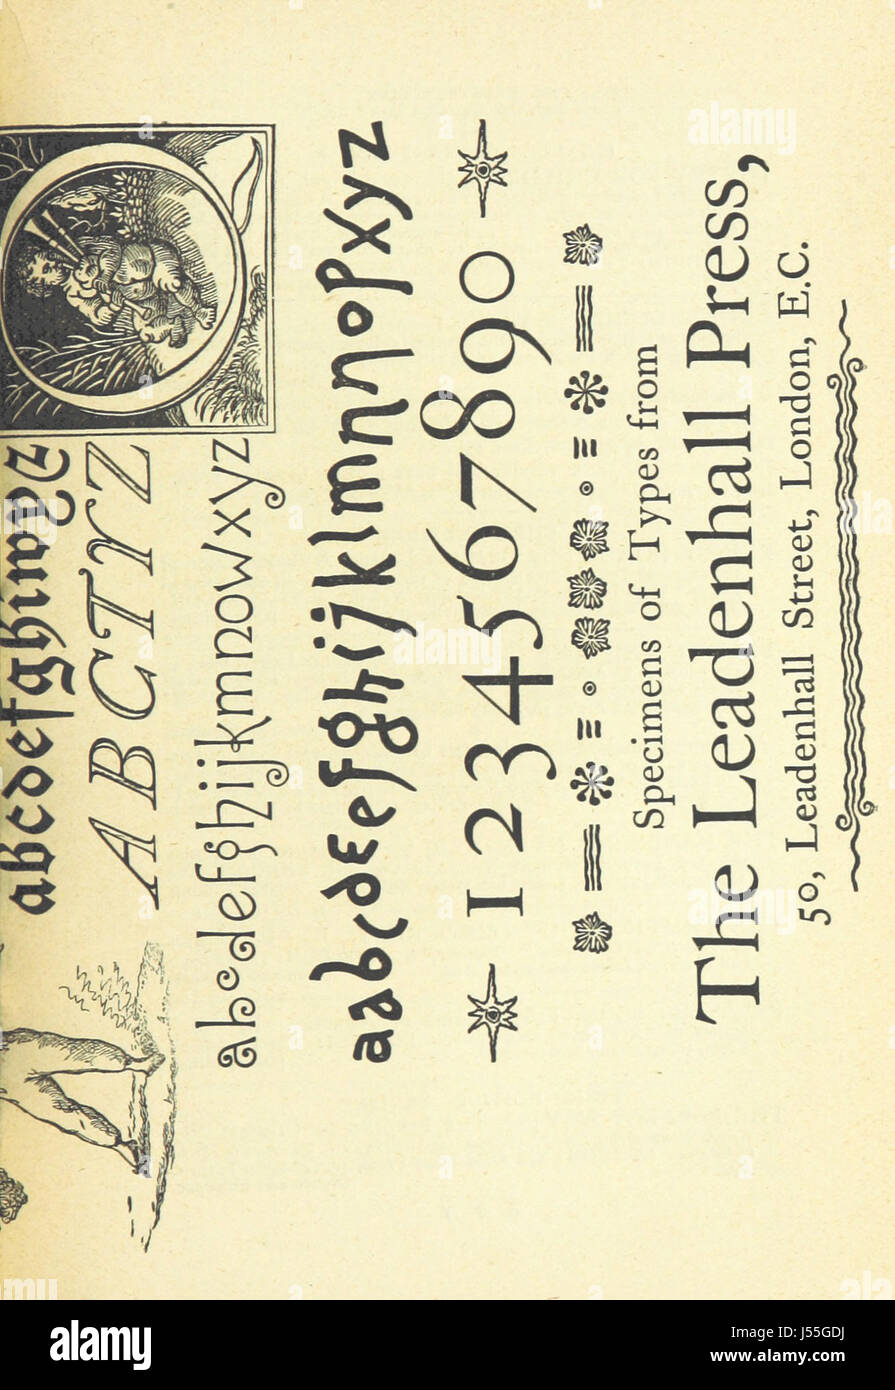 abcdefghiwyz
ABCTYZ
abcdefghijkmnowxyz
aabcdEefghijklmnnopxyz
1234567890
Specimens of Types from
The Leadenhall Press,
50, Leadenhall Street, London, E.C.
alamy
Image ID: J55GDJ
www.alamy.com